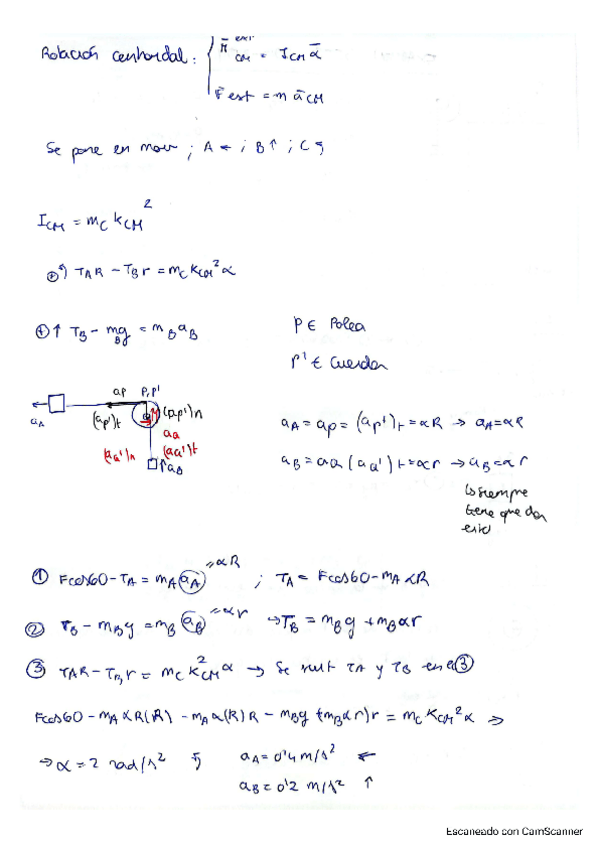 Rotación centroidal: { M̄ᵉˣᵗ_CM = I_CM ᾱ
F̄ est = m ā_CM
Se pone en mov ; A ← ; B ↑ ; C ↰
I_CM = m_C k_CM²
⊕↰ T_A R - T_B r = m_C k_CM² α
⊕↑ T_B - m_B g = m_B a_B
P ∈ Polea
P' ∈ Cuerda
a_A
a_P
P, P'
(a_P')t
(a_P')n
a_Q
(a_Q')n
(a_Q')t
↑ a_B
a_A = a_P = (a_P')t = αR → a_A = αR
a_B = a_Q (a_Q')t = αr → a_B = αr
↳ siempre
tiene que dar
esto
① Fcos60 - T_A = m_A (a_A) = αR ; T_A = Fcos60 - m_A αR
② T_B - m_B g = m_B (a_B) = αr → T_B = m_B g + m_B αr
③ T_A R - T_B r = m_C k_CM² α → Se sust T_A y T_B en ec③
Fcos60 - m_A αR(R) - m_A α(R)R - m_B g + m_B αr)r = m_C k_CM² α ⇒
→ α = 2 rad/s² ↰ a_A = 0'4 m/s² ←
a_B = 0'2 m/s² ↑
Escaneado con CamScanner